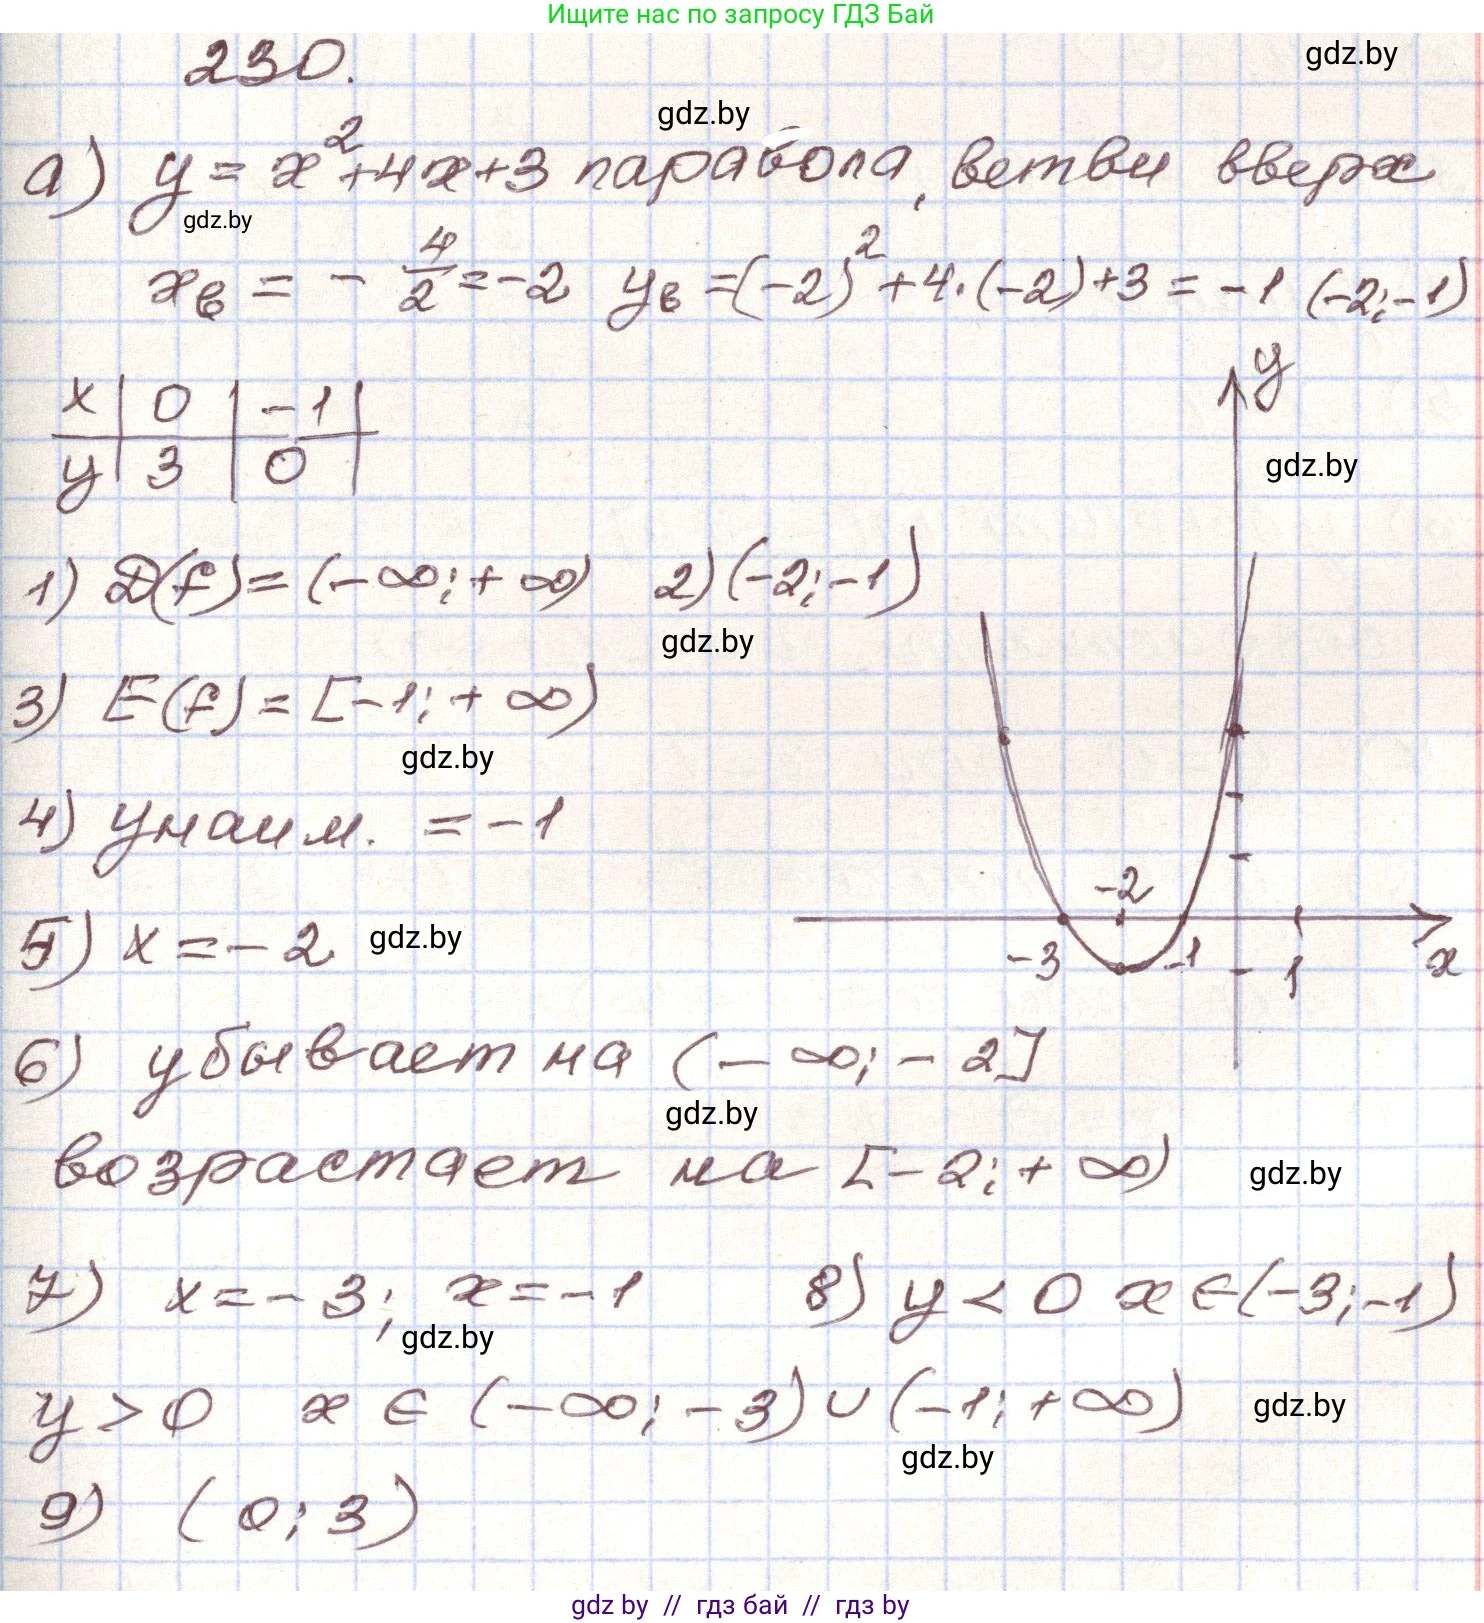 Ищите нас по запросу ГДЗ Бай
230.
gdz.by
gdz.by
а) y = x²+4x+3 парабола, ветви вверх
gdz.by
xв = - 4/2 = -2 yв = (-2)² + 4·(-2)+3 = -1 (-2;-1)
y
x | 0 | -1 |
y | 3 | 0 |
gdz.by
1) D(f) = (-∞; +∞) 2) (-2; -1)
gdz.by
3) E(f) = [-1; +∞)
gdz.by
4) yнаим. = -1
-2
5) x = -2
gdz.by
-3 -1 1 x
6) убывает на (-∞; -2]
gdz.by
возрастает на [-2; +∞)
gdz.by
7) x = -3; x = -1 8) y < 0 x ∈ (-3; -1)
gdz.by
y > 0 x ∈ (-∞; -3) ∪ (-1; +∞)
gdz.by
gdz.by
9) (0; 3)
gdz by // гдз бай // gdz by